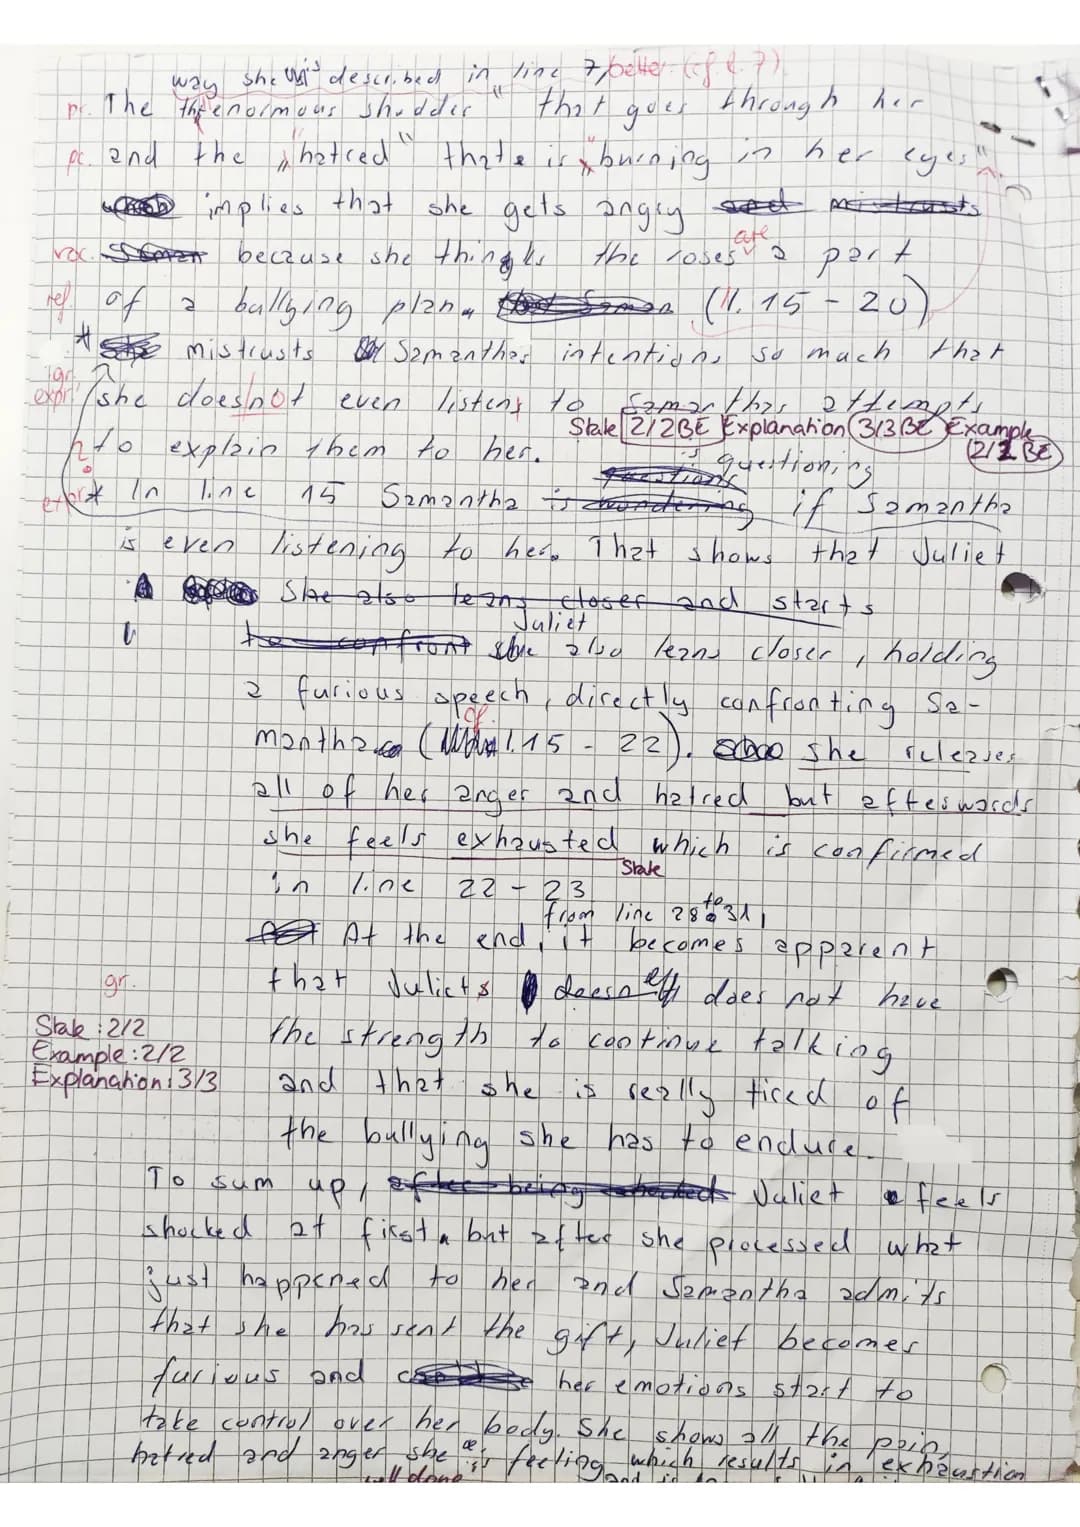 way she is described in line 7, better: (cf. l. 7)
pr. The "enormous shudder" that goes through her
pc. and the "hatred" that is "burning in her eyes"
implies that she gets angry and mistrusts
voc. because she thinks the roses are a part
ref. of a bullying plan. (ll. 15 - 20)
* mistrusts Samanthas intentions so much that
gr.
expr. she does not even listens to Samanthas attempts
State 2/2 BE Explanation 3/3 BE Example 2/2 BE
to explain them to her.
is questioning
expr. * In line 15 Samantha is wondering if Samantha
is even listening to her. That shows that Juliet
She also leans closer and starts
Juliet
to confront she also leans closer, holding
a furious speech, directly confronting Sa-
cf.
mantha (l. 15 - 22). she releases
all of her anger and hatred but afterwards
she feels exhausted which is confirmed
State
in line 22 - 23
from line 28 to 31,
At the end, it becomes apparent
gr. that Juliets does not have
State: 2/2
the strength to continue talking
Example: 2/2
Explanation: 3/3
and that she is really tired of
the bullying she has to endure.
To sum up, after being shocked Juliet feels
shocked at first, but after she processed what
just happened to her and Samantha admits
that she has sent the gift, Juliet becomes
furious and her emotions start to
take control over her body. She shows all the pain,
hatred and anger she is feeling which results in exhaustion
well done